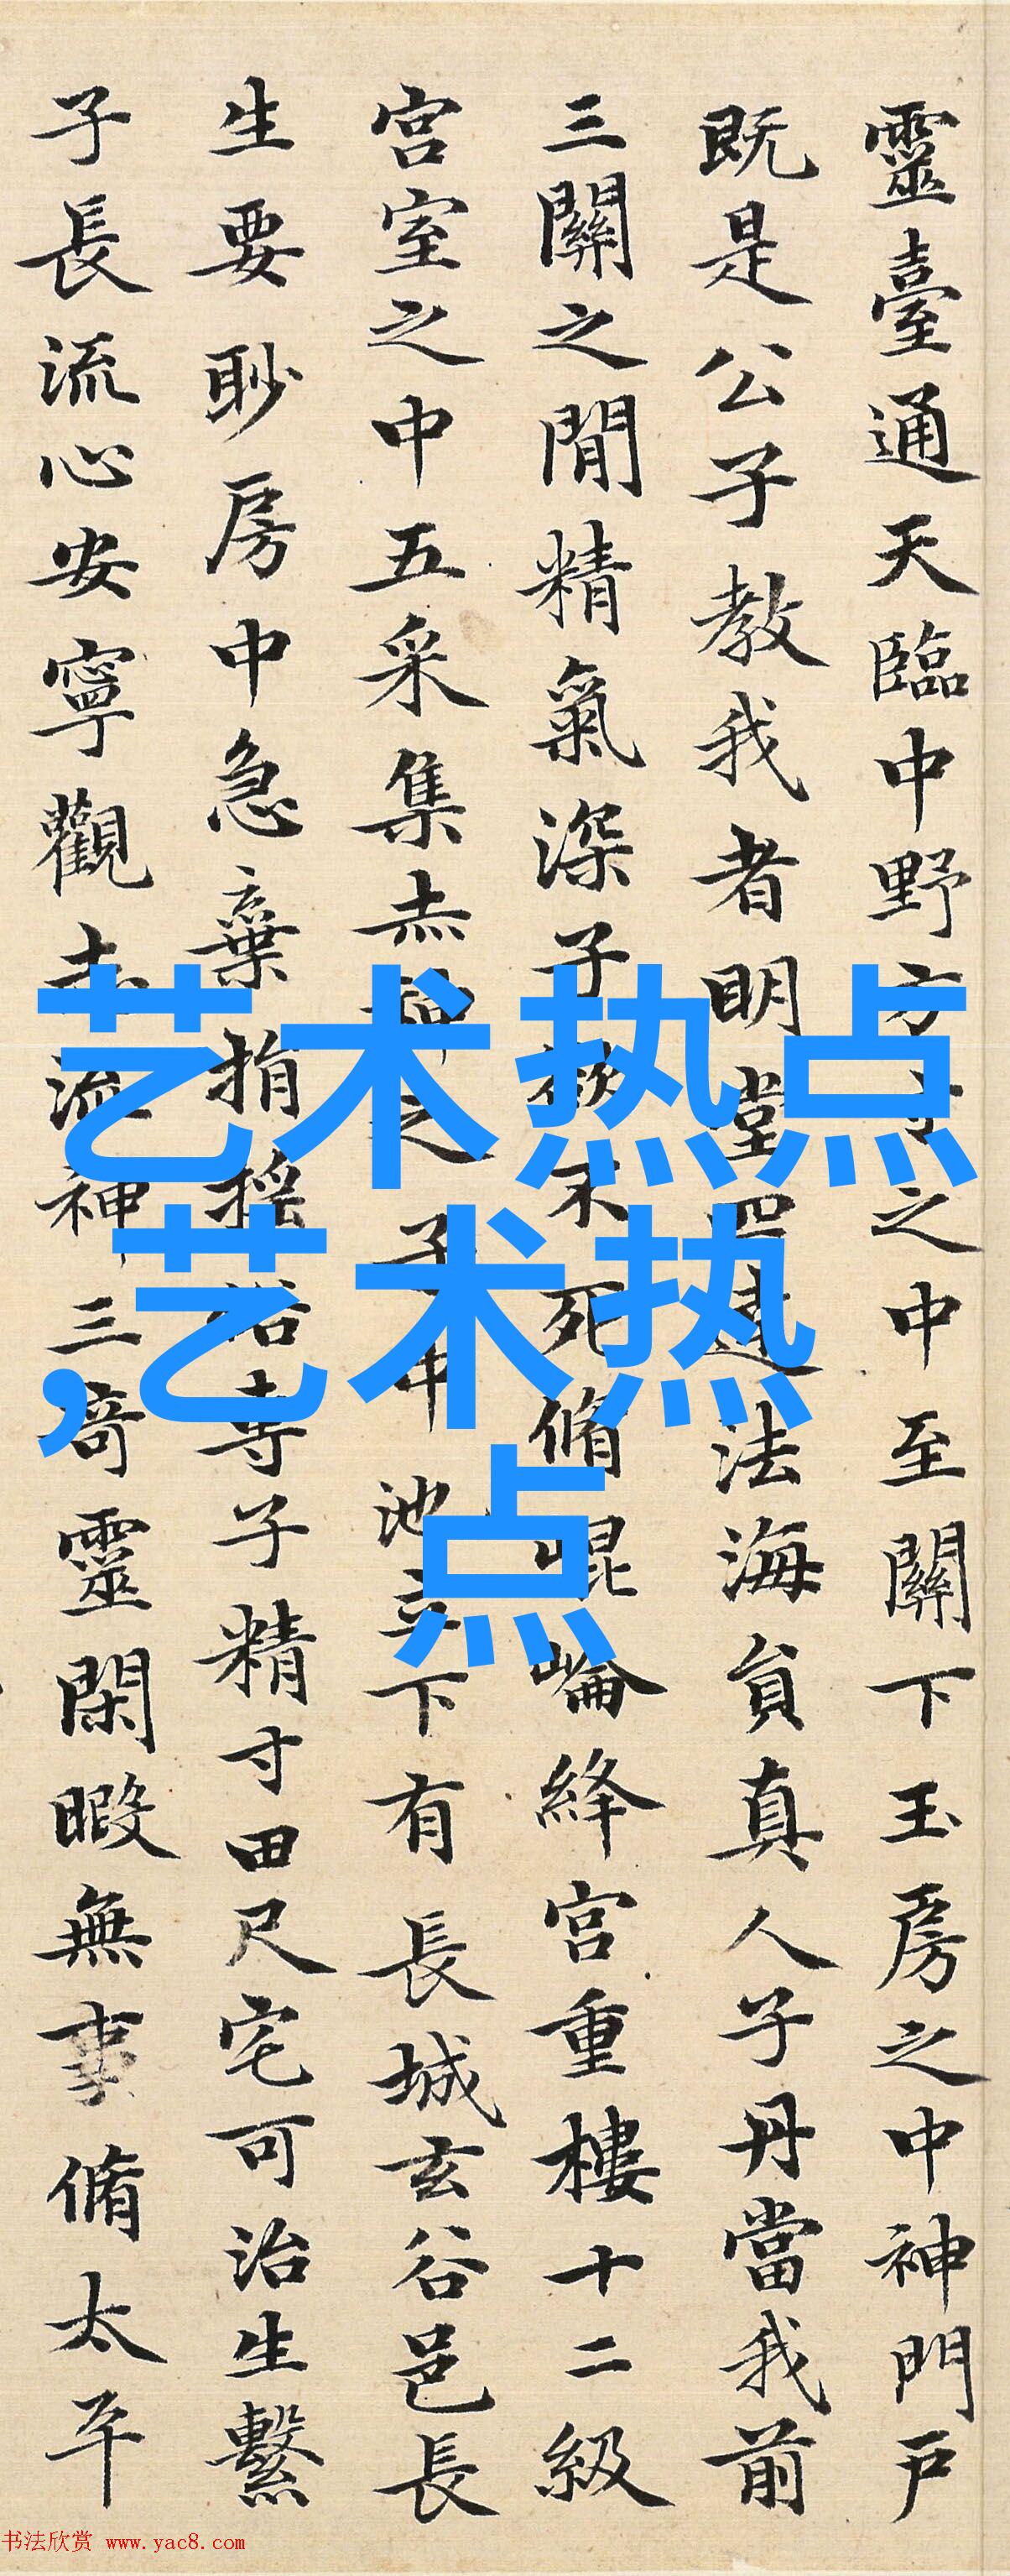 靈臺通天臨中野方寸之中至關下玉房之中神門戶
既是公子教我者明堂四達法海員真人子丹當我前
三關之閒精氣深子欲不死脩崐崘絳宮重樓十二級
宮室之中五采集赤神之子中池立下有長城玄谷邑長
生要眇房中急棄捐搖俗專子精寸田尺宅可治生繫
子長流心安寧觀志流神三奇靈閑暇無事脩太平
艺术热点
,艺术热
点
书法欣赏 www.yac8.com